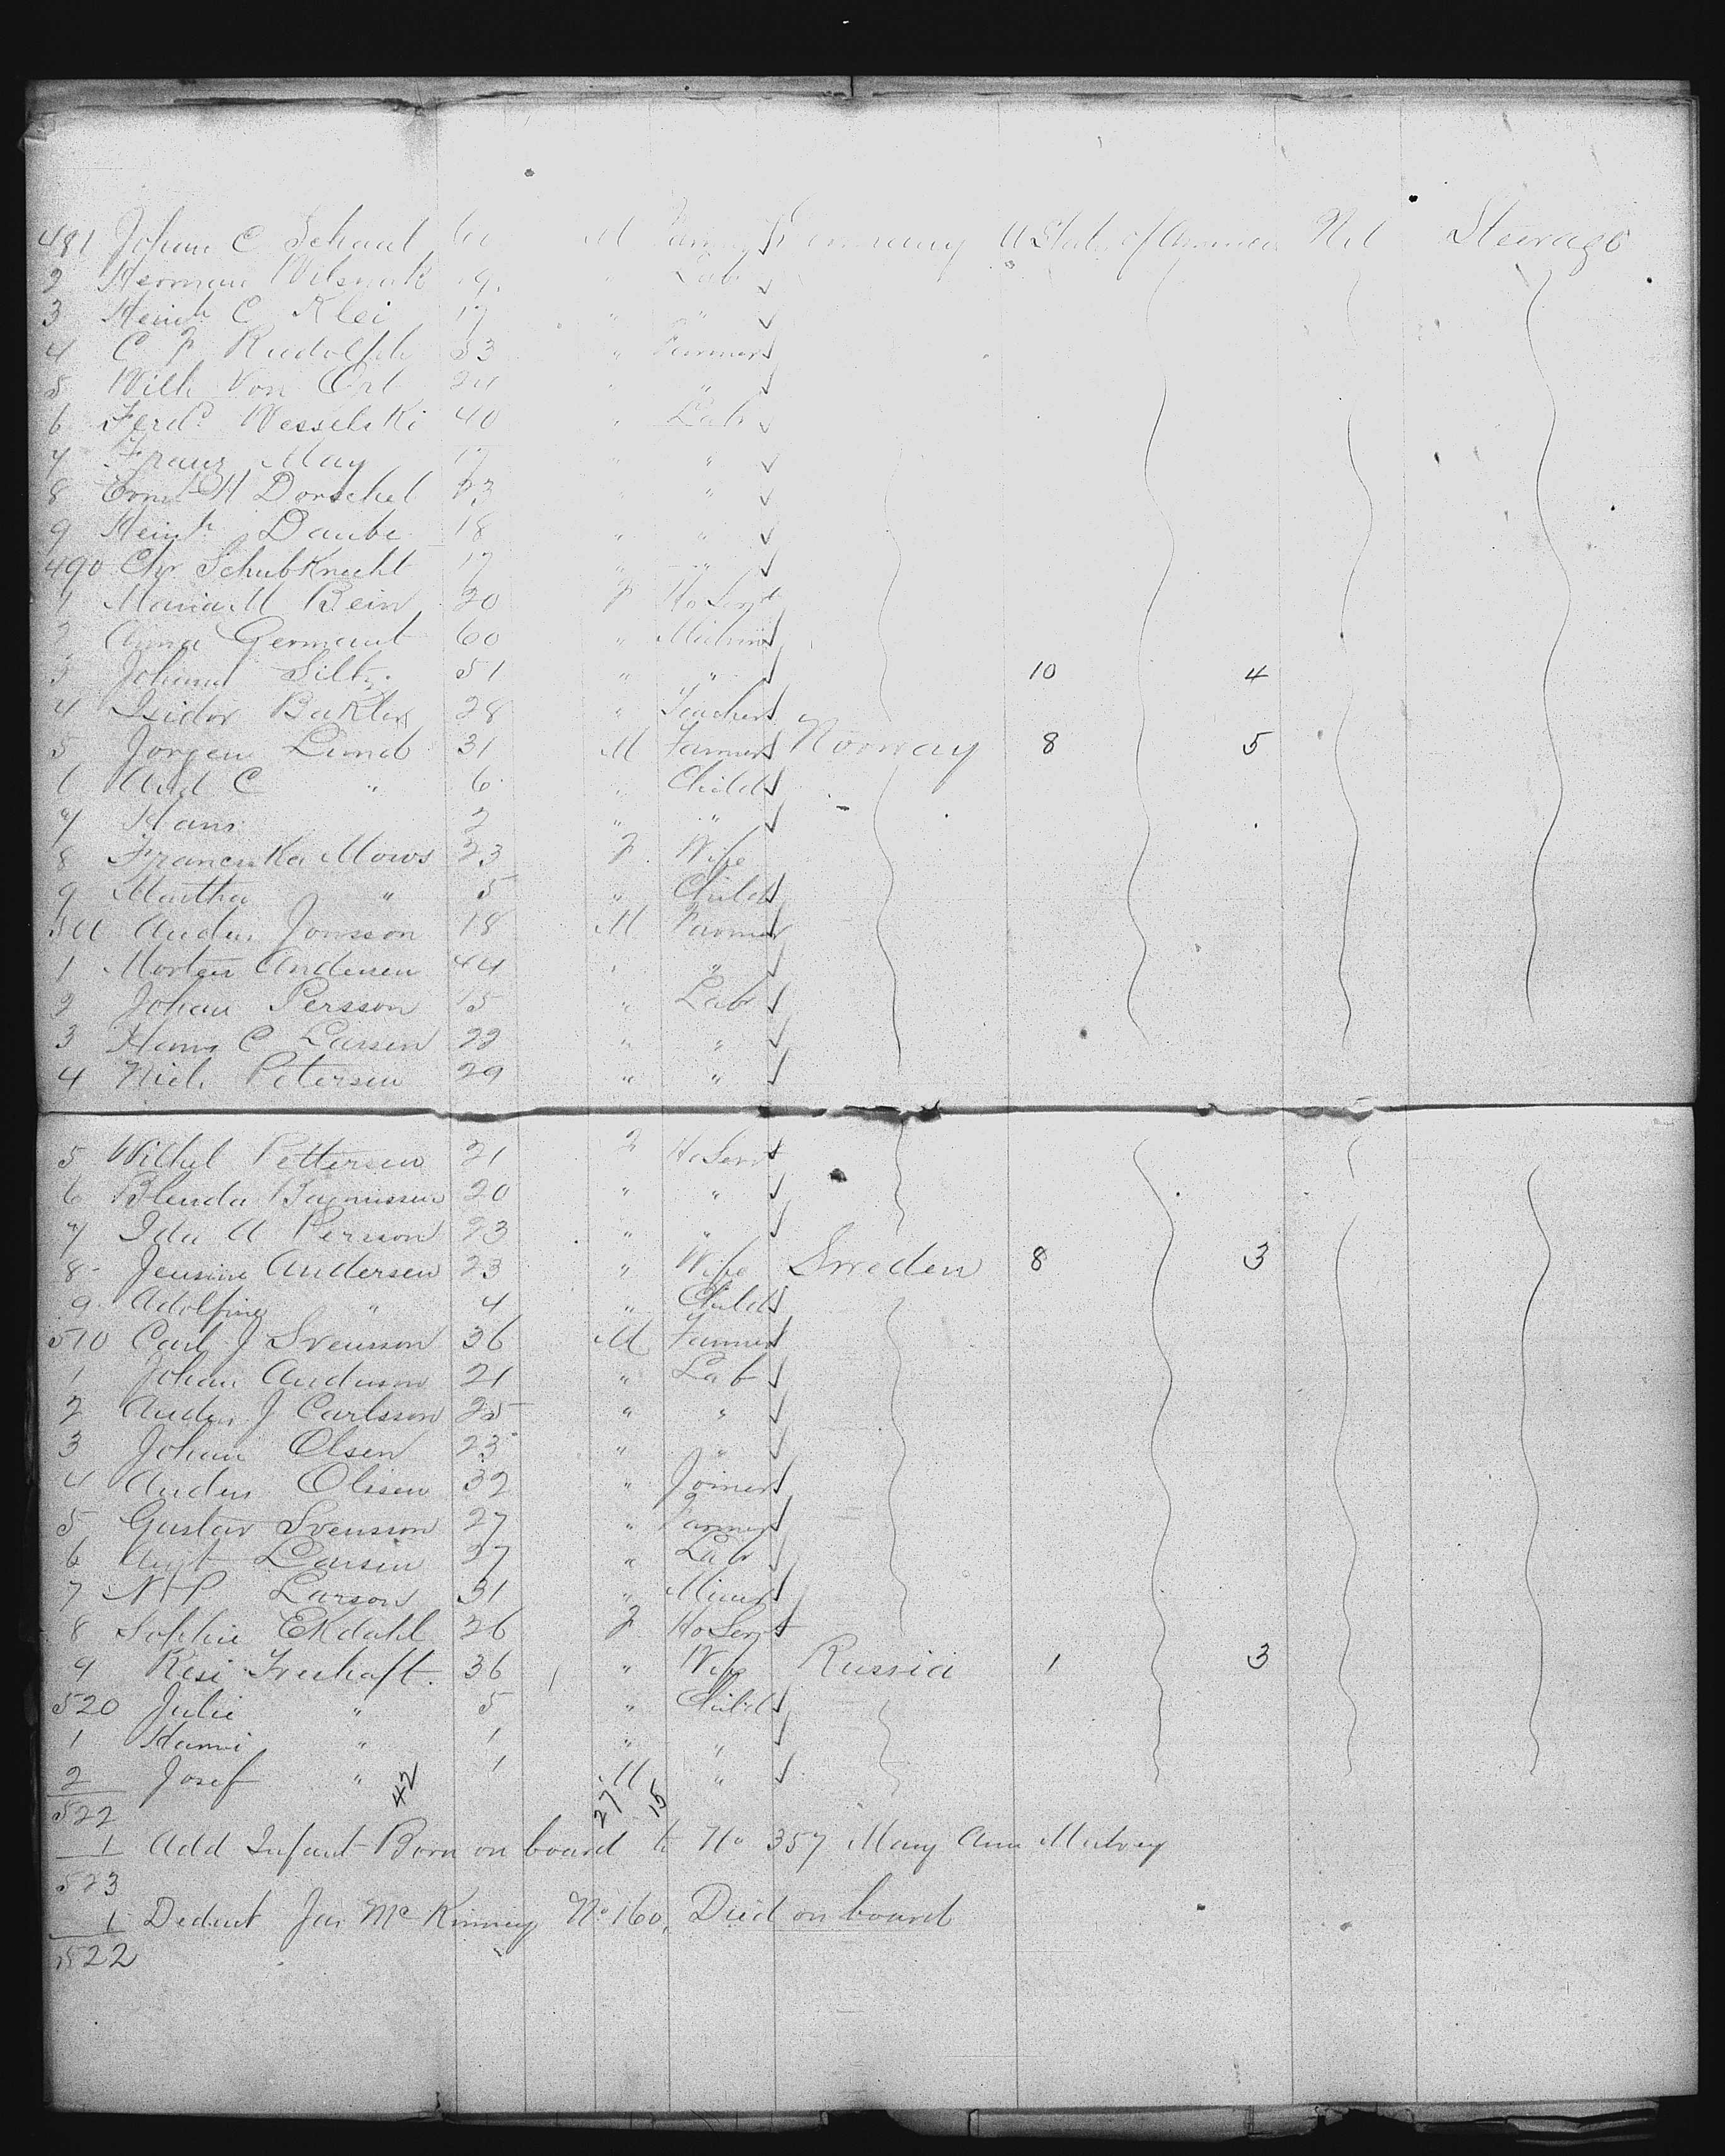 481 Johan C Schaut 60 M Farmer Germany U States of America Nil Steerage
2 Herman 19 " Lab
3 Heinh C Klei 17 " "
4 C F Rudolph 53 " Farmer
5 Wilh Von Ort 24 " "
6 Ferdd Wesselski 40 " Lab
7 Franz May 17 " "
8 Ernst H Dorschel 23 " "
9 Heinh Daube 18 " "
490 Chr Schubknecht 17 " "
1 Maria M Bein 20 F Ho Servt
2 Anna Germant 60 "
3 Johanna Siltz 51 " " 10 4
4 Isidor 28 " Teacher
5 Jorgen Lund 31 M Farmer Norway 8 5
6 And C " 6 " Child
7 Hans 2 " "
8 Franciska Mows 23 F Wife
9 Martha " 5 " Child
500 Anders Jonsson 18 M Farmer
1 Morten Andersen 44 " "
2 Johan Persson 15 " Lab
3 Hans C Larsen 22 " "
4 Niels Petersen 29 " "
5 Wilhel Pettersen 21 F Ho Servt
6 Blenda 20 " "
7 Ida A Person 23 " "
8 Jensine Andersen 23 " Wife Sweden 8 3
9 Adolfine " 4 " Child
510 Carl J Svensson 36 M Farmer
1 Johan Anderson 21 " Lab
2 Anders J Carlsson 25 " "
3 Johan Olsen 23 " "
4 Anders Olisen 32 " Joiner
5 Gustav Svensson 27 " Farmer
6 Augt Larsen 37 " Lab
7 N P Larson 31 " Miner
8 Sophie Ekdahl 26 F Ho Servt
9 Resi Freihaft 36 " Wife Russia 1 3
520 Julie " 5 " Child
1 Hanni " 1 " "
2 Josef " 1 M "
42 27 15
522
1 Add Infant Born on board to No 357 Mary Ann Mulvey
523
1 Deduct Jas McKinney No 160, Died on board
522